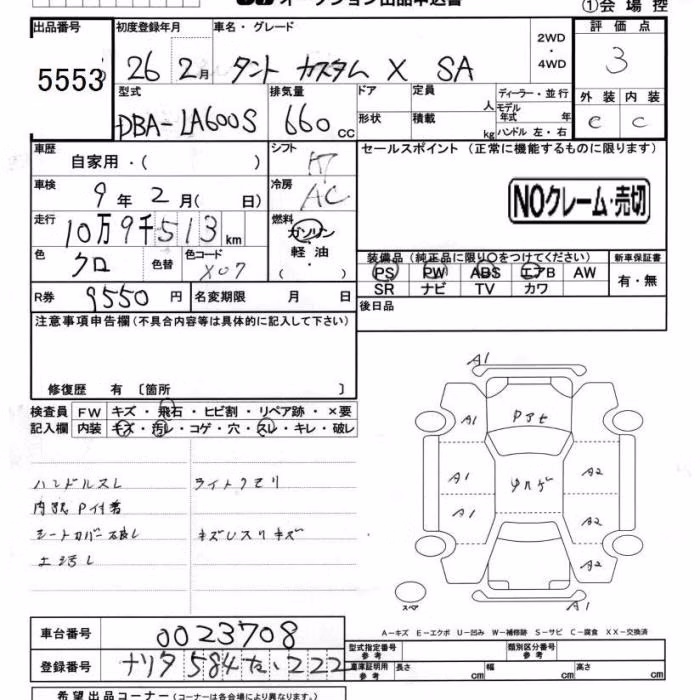 ①会場控
出品番号 初度登録年月 車名・グレード 2WD・4WD 評価点
5553 26 2月 タント カスタム X SA 3
型式 排気量 ドア 定員 人 ディーラー・並行 外装 内装
DBA-LA600S 660cc 形状 積載 kg モデル年式 年 ハンドル 左・右 e c
車歴 自家用・( ) シフト セールスポイント (正常に機能するものに限ります)
車検 9年 2月 ( 日) 冷房 AC
NOクレーム・売切
走行 10万9千513km 燃料 ガソリン・軽油・( )
色 クロ 色替 色コード X07
装備品 (純正品に限り○をつけてください) 新車保証書
PS PW ABS エアB AW 有・無
SR ナビ TV カワ
R券 9550円 名変期限 月 日 後日品
注意事項申告欄 (不具合内容等は具体的に記入して下さい)
修復歴 有 〔箇所 〕
検査員記入欄 FW キズ・飛石・ヒビ割・リペア跡・×要
内装 キズ・汚レ・コゲ・穴・スレ・キレ・破レ
ハンドルスレ ライトクモリ
シートカバー
キズ
A1
A1
A1 A2
A1 A2
A2
A1
スペア
A-キズ E-エクボ U-凹み W-補修跡 S-サビ C-腐食 XX-交換済
車台番号 0023708
型式指定番号 参考 類別区分番号 参考
登録番号 ナリタ 584 た・222
車庫証明用 参考 長さ cm 幅 cm 高さ cm
希望出品コーナー (コーナーは各会場により異なります。)